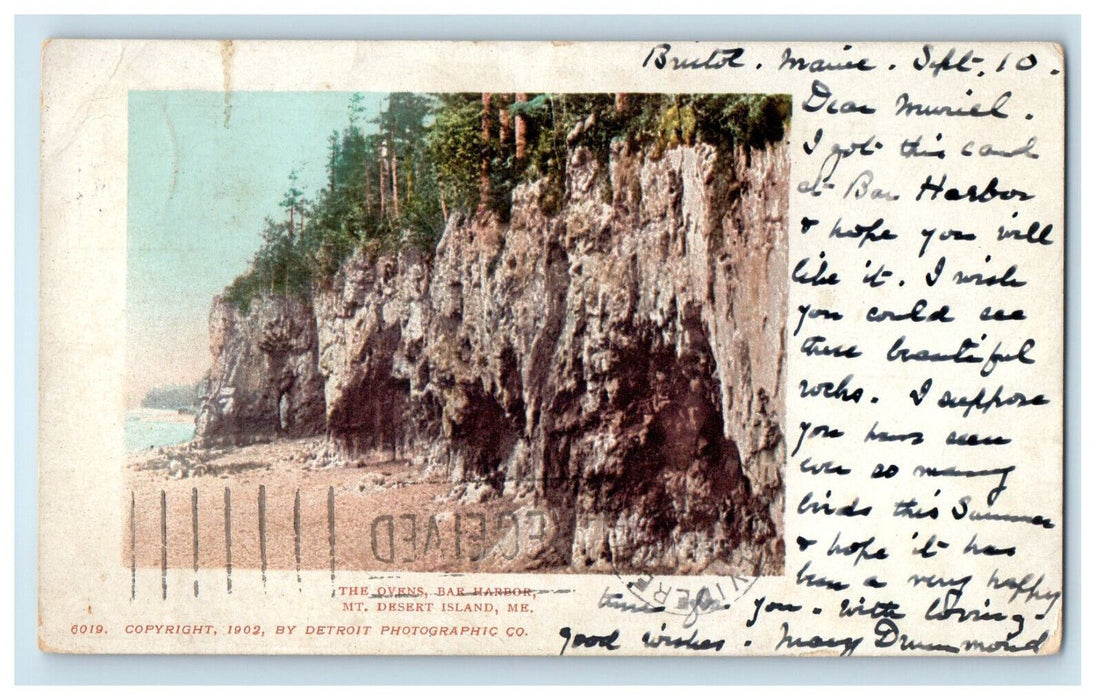 Bristol. Maine. Sept. 10.
Dear Muriel.
I got this card
at Bar Harbor
& hope you will
like it. I wish
you could see
these beautiful
rocks. I suppose
you have seen
ever so many
birds this Summer
& hope it has
been a very happy
time for you. With loving
good wishes. Mary Drummond
RECEIVED
THE OVENS, BAR HARBOR,
MT. DESERT ISLAND, ME.
6019. COPYRIGHT, 1902, BY DETROIT PHOTOGRAPHIC CO.